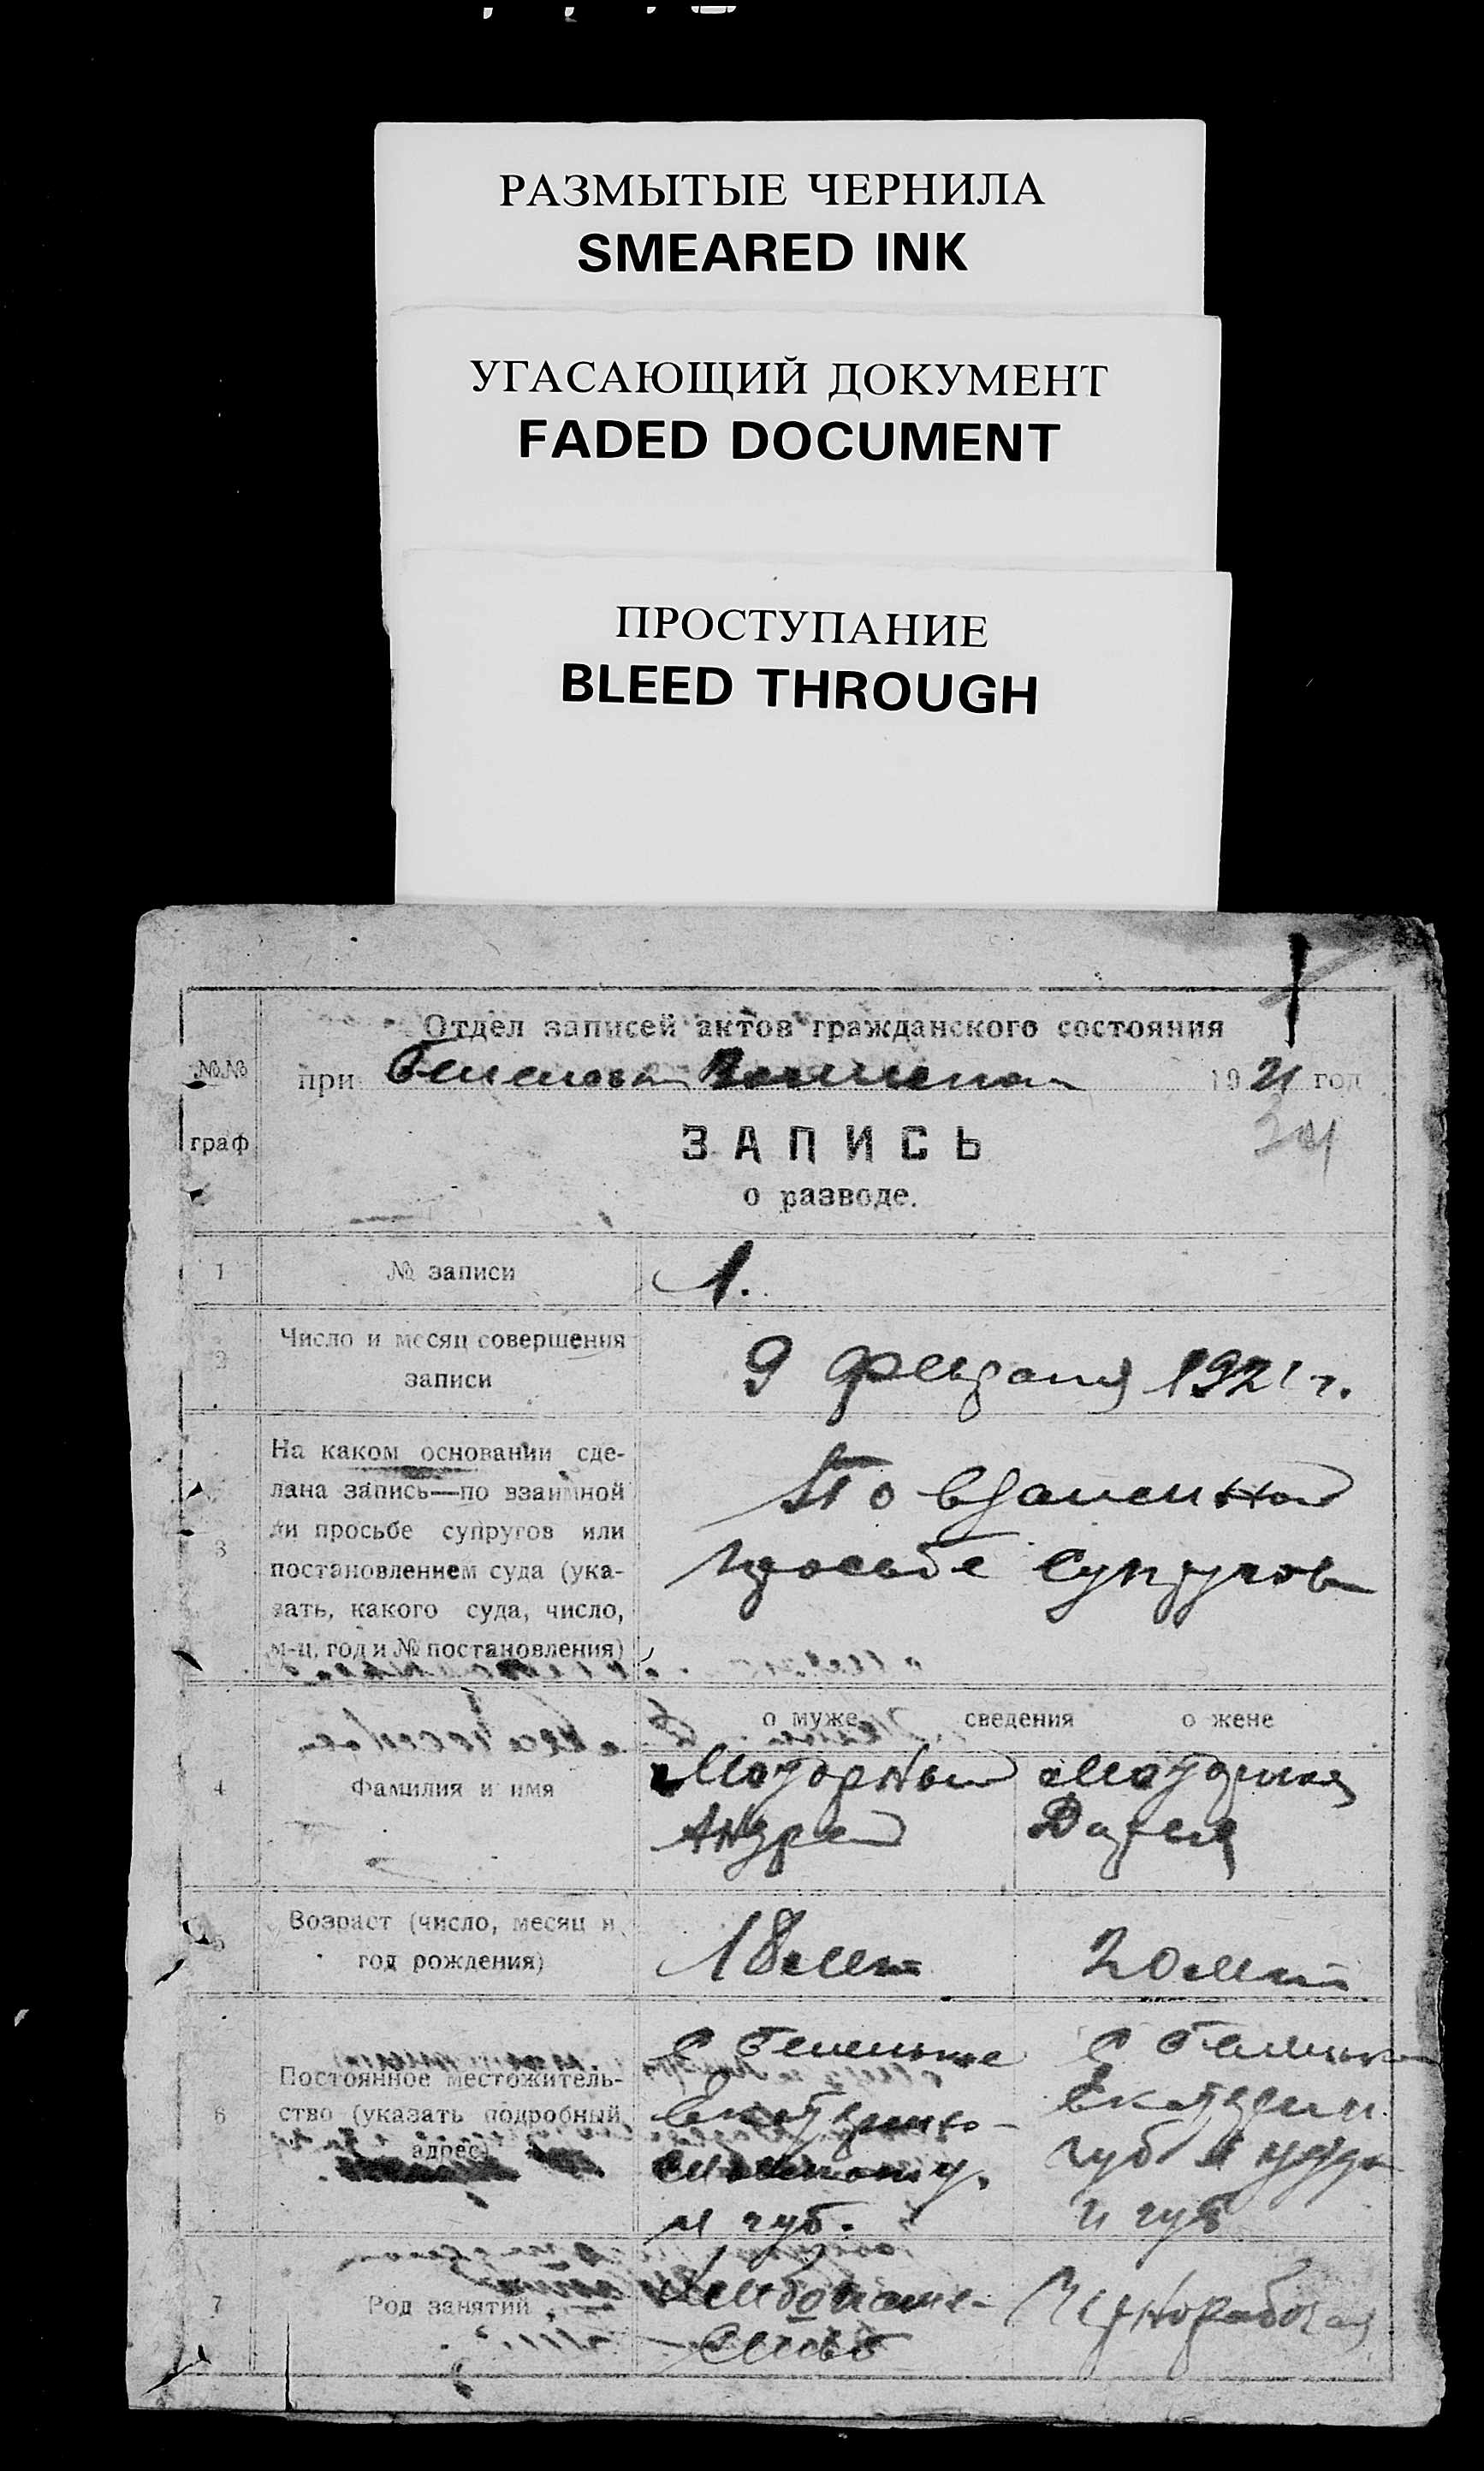 РАЗМЫТЫЕ ЧЕРНИЛА
SMEARED INK
УГАСАЮЩИЙ ДОКУМЕНТ
FADED DOCUMENT
ПРОСТУПАНИЕ
BLEED THROUGH
Отдел записей актов гражданского состояния
№№
при 1921 год
граф
ЗАПИСЬ
о разводе.
1 № записи 1.
2 Число и месяц совершения
записи 9 февраля 1921 г.
3 На каком основании сде-
лана запись—по взаимной
ли просьбе супругов или
постановлением суда (ука-
зать, какого суда, число,
м-ц, год и № постановления)
По взаимной
просьбе супругов
о муже сведения о жене
4 Фамилия и имя
Моторный
Андрей
Моторная
Дария
5 Возраст (число, месяц и
год рождения)
18 лет 20 лет
6 Постоянное местожитель-
ство (указать подробный
адрес)
с
и губ.
с
губ и уезда
и губ
7 Род занятий
Хлебопаше-
ство
Чернорабочая